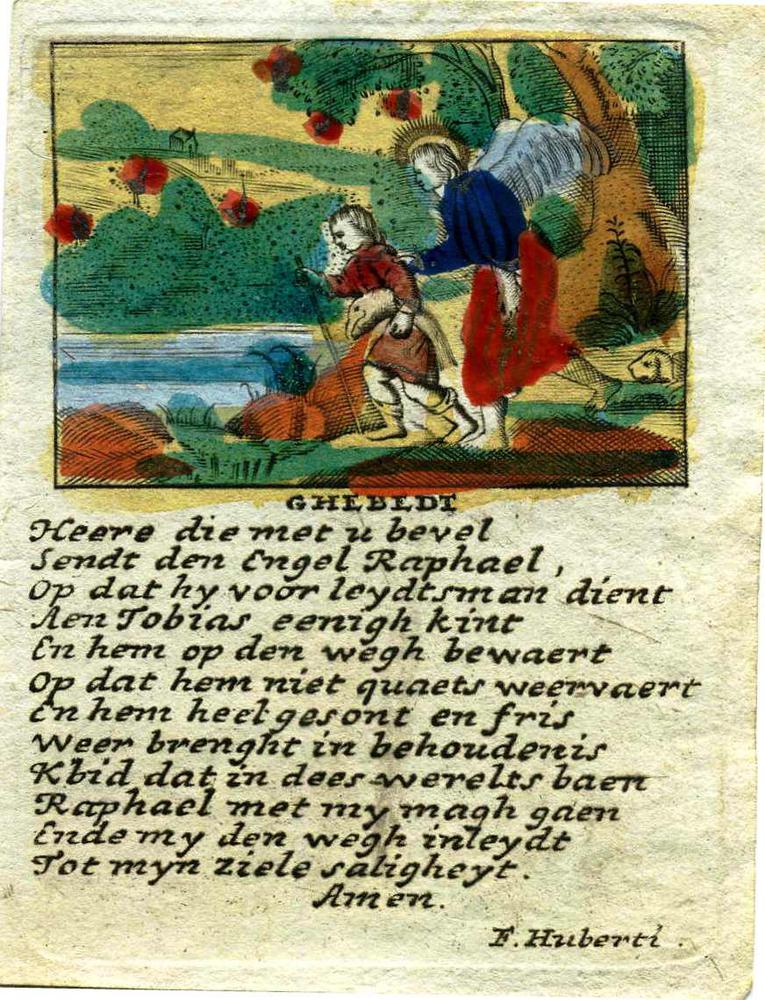 GHEBEDT
Heere die met u bevel
Sendt den Engel Raphael,
Op dat hy voor leydtsman dient
Aen Tobias eenigh kint
En hem op den wegh bewaert
Op dat hem niet quaets weervaert
En hem heel gesont en fris
Weer brenght in behoudenis
Kbid dat in dees werelts baen
Raphael met my magh gaen
Ende my den wegh inleydt
Tot myn ziele saligheyt.
Amen.
F. Huberti.